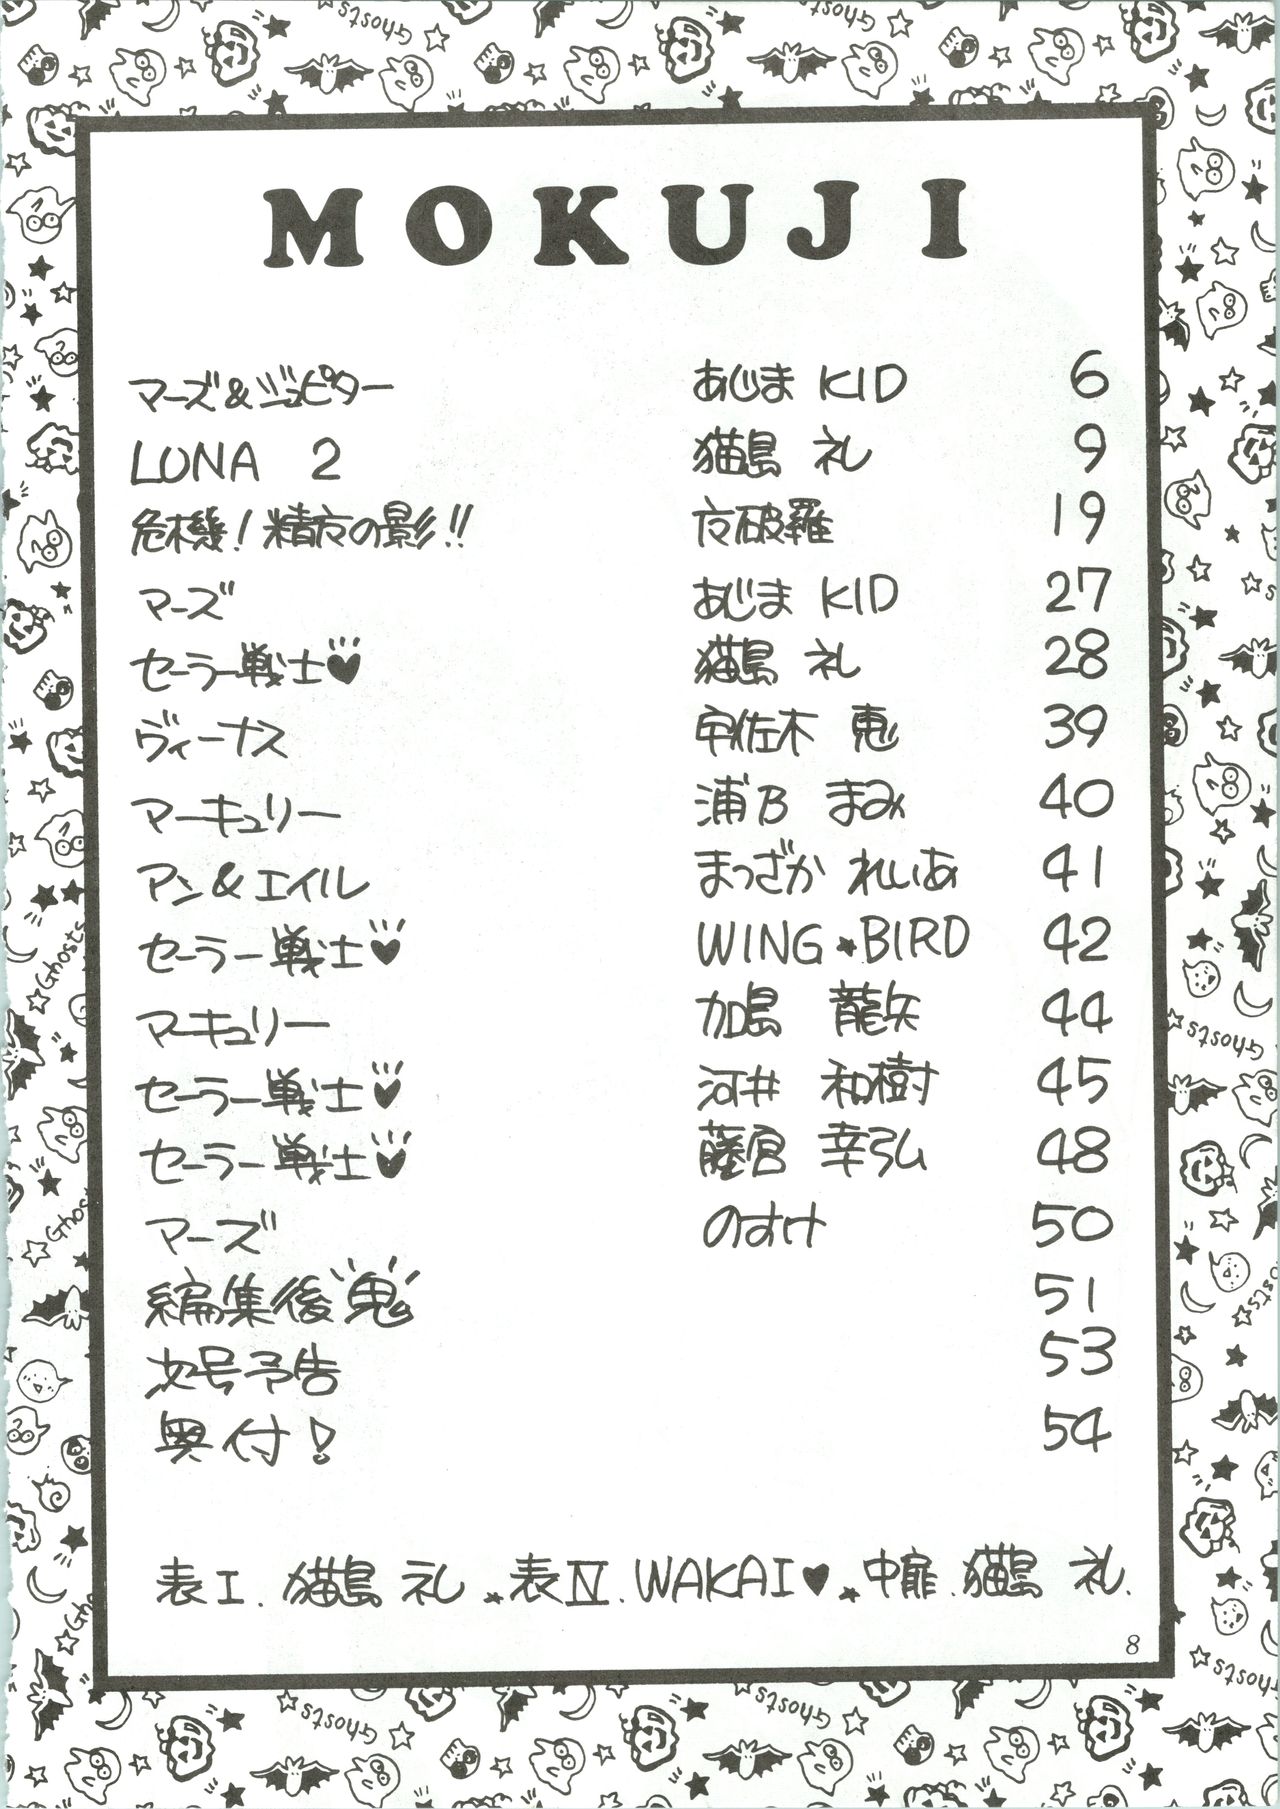 MOKUJI
マーズ&ジュピター あじま KID 6
LUNA 2 猫島 礼 9
危機!精方の影!! 夜破羅 19
マーズ あじま KID 27
セーラー戦士♥ 猫島 礼 28
ヴィーナス 宇佐木 恵 39
マーキュリー 浦乃 まみ 40
アン&エイル まっざか れいあ 41
セーラー戦士♥ WING★BIRD 42
マーキュリー 加島 龍矢 44
セーラー戦士♥ 河井 和樹 45
セーラー戦士♥ 藤宮 幸弘 48
マーズ のすけ 50
編集後鬼 51
次号予告 53
奥付! 54
表I. 猫島 礼 ★表IV. WAKAI♥ ★中扉. 猫島 礼.
8
Ghosts
Ghosts
Ghosts
Ghosts
Ghosts
Ghosts
Ghosts
Ghosts